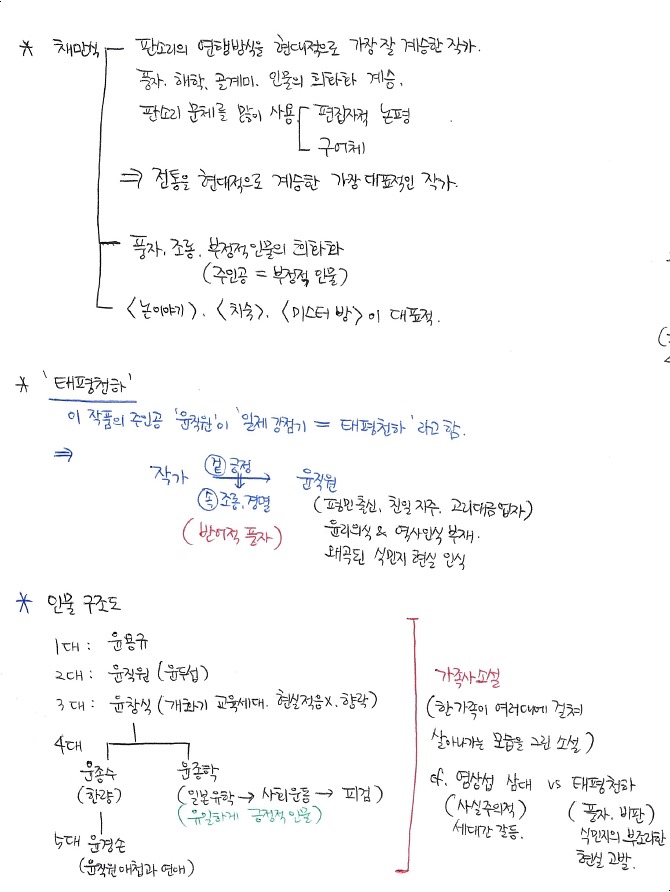 * 채만식 판소리의 연행방식을 현대적으로 가장 잘 계승한 작가.
풍자, 해학, 골계미, 인물의 희화화 계승,
판소리 문체를 많이 사용 편집자적 논평
구어체
⇒ 전통을 현대적으로 계승한 가장 대표적인 작가.
풍자, 조롱, 부정적 인물의 희화화
(주인공 = 부정적 인물)
<논이야기>, <치숙>, <미스터 방>이 대표적.
* '태평천하'
이 작품의 주인공 '윤직원'이 '일제강점기 = 태평천하'라고 함.
⇒
작가 겉 긍정 윤직원
속 조롱, 경멸 (평민출신, 친일 지주, 고리대금업자)
(반어적 풍자) 윤리의식 & 역사인식 부재.
왜곡된 식민지 현실 인식
* 인물 구조도
1대 : 윤용규
2대 : 윤직원 (윤두섭)
3대 : 윤창식 (개화기 교육세대. 현실적응X, 향락)
4대
윤종수 윤종학
(한량) (일본유학 → 사회운동 → 피검)
(유일하게 긍정적 인물)
5대 윤경손
(윤직원 애첩과 연애)
가족사소설
(한 가족이 여러대에 걸쳐
살아나가는 모습을 그린 소설)
cf. 염상섭 삼대 vs 태평천하
(사실주의적) (풍자, 비판)
세대간 갈등. 식민지의 부조리한
현실 고발.